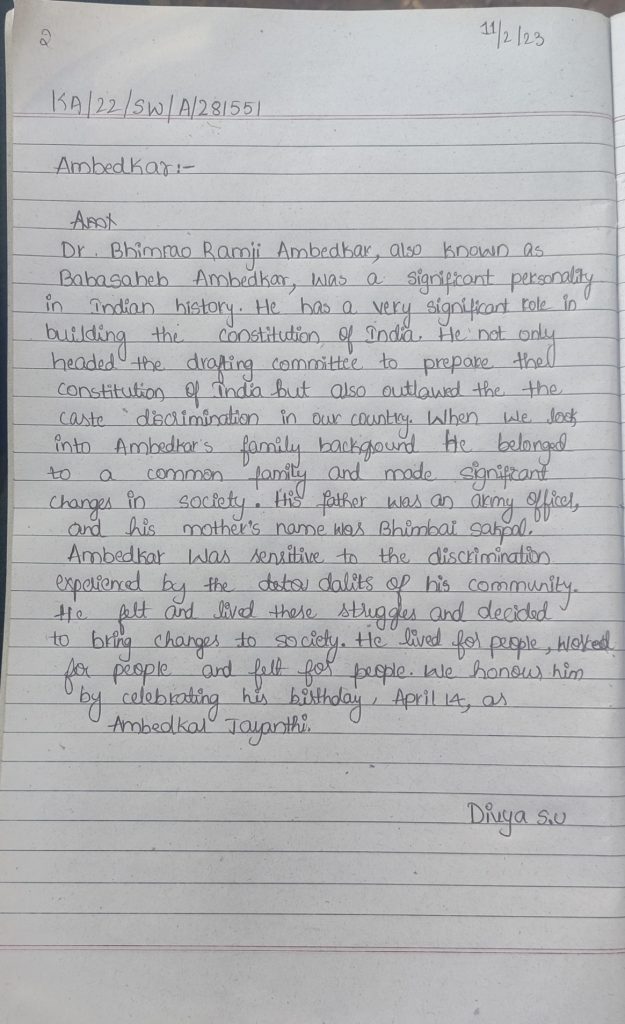 2
11/2/23
KA/22/SW/A/281551
Ambedkar:-
Dr. Bhimrao Ramji Ambedkar, also known as
Babasaheb Ambedkar, was a significant personality
in Indian history. He has a very significant role in
building the constitution of India. He not only
headed the drafting committee to prepare the
constitution of India but also outlawed the the
caste discrimination in our country. When we look
into Ambedkar's family background He belonged
to a common family and made significant
changes in society. His father was an army officer,
and his mother's name was Bhimbai sakpal.
Ambedkar was sensitive to the discrimination
experienced by the dalits of his community.
He felt and lived these struggles and decided
to bring changes to society. He lived for people, worked
for people and felt for people. We honour him
by celebrating his birthday, April 14, as
Ambedkar Jayanthi.
Divya S.U